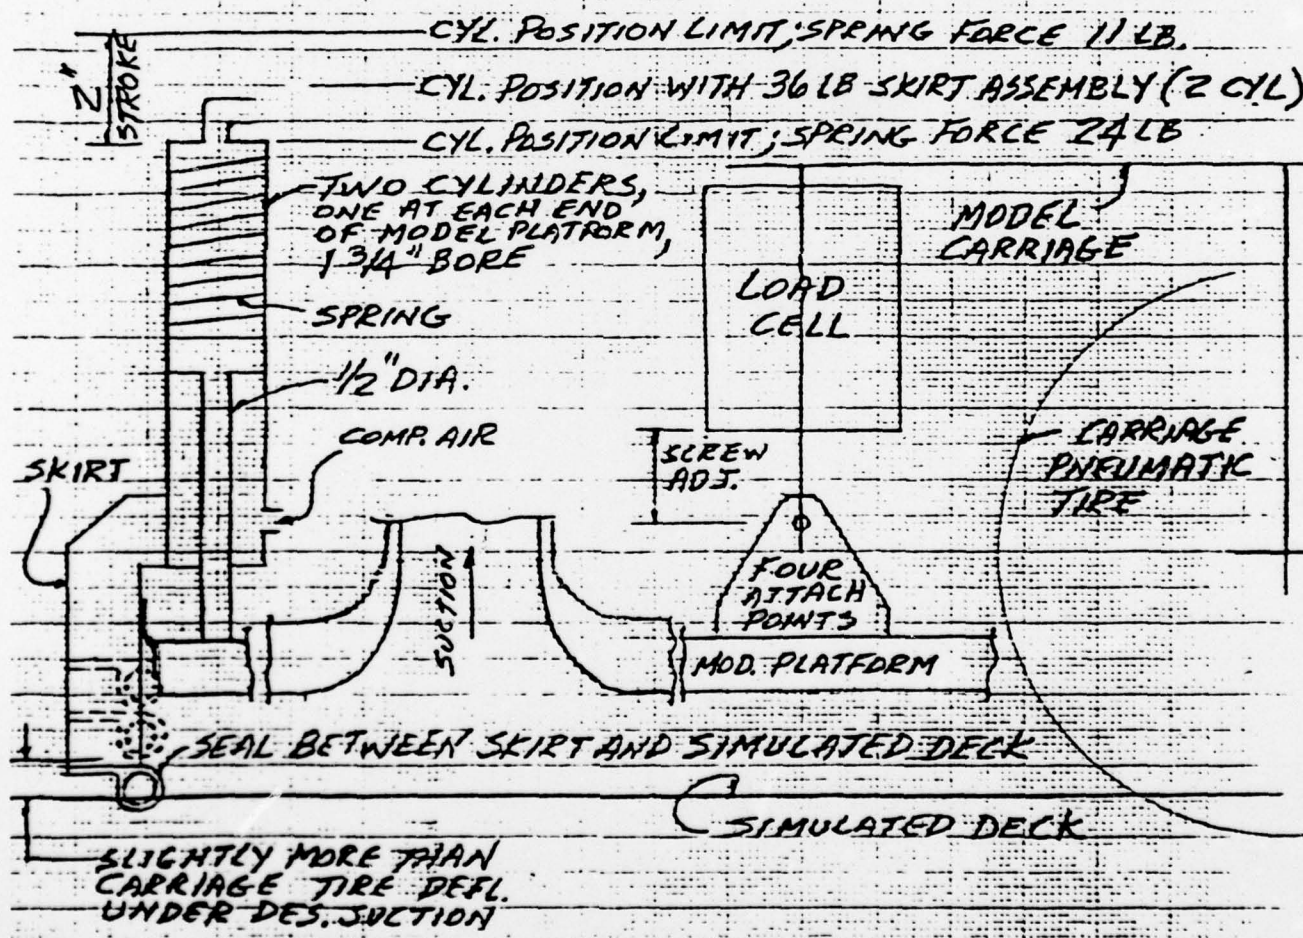 CYL. POSITION LIMIT; SPRING FORCE 11 LB.
2" STROKE
CYL. POSITION WITH 36 LB SKIRT ASSEMBLY (2 CYL)
CYL. POSITION LIMIT; SPRING FORCE 24 LB
TWO CYLINDERS,
ONE AT EACH END
OF MODEL PLATFORM,
1 3/4" BORE
MODEL
CARRIAGE
LOAD
CELL
SPRING
1/2" DIA.
COMP. AIR
SCREW
ADJ.
CARRIAGE
PNEUMATIC
TIRE
SKIRT
SUCTION
FOUR
ATTACH
POINTS
MOD. PLATFORM
SEAL BETWEEN SKIRT AND SIMULATED DECK
SIMULATED DECK
SLIGHTLY MORE THAN
CARRIAGE TIRE DEFL.
UNDER DES. SUCTION